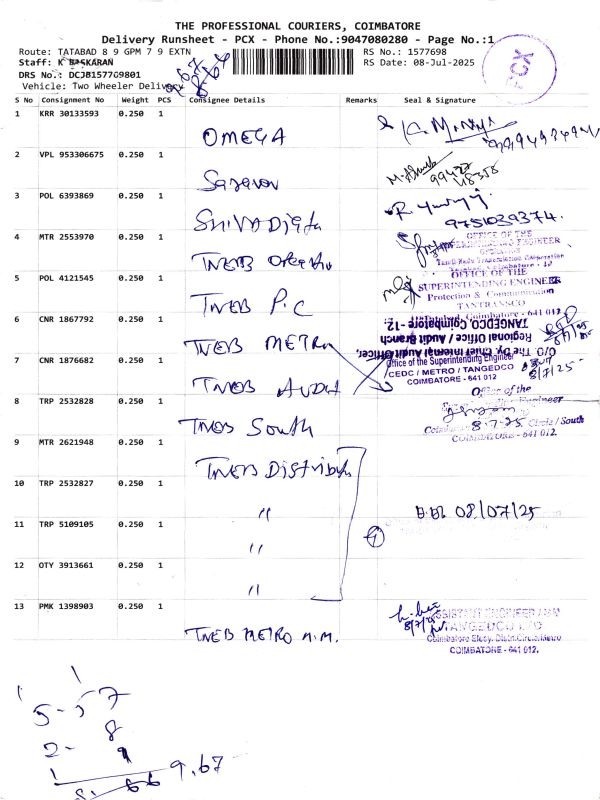 THE PROFESSIONAL COURIERS, COIMBATORE
Delivery Runsheet - PCX - Phone No.:9047080280 - Page No.:1
Route: TATABAD 8 9 GPM 7 9 EXTN
RS No.: 1577698
Staff: K BASKARAN
RS Date: 08-Jul-2025
DRS No.: DCJB157769801
Vehicle: Two Wheeler Delivery
PCX
S No Consignment No Weight PCS Consignee Details Remarks Seal & Signature
1 KRR 30133593 0.250 1 OMEGA
2 VPL 953306675 0.250 1
99422
48358
3 POL 6393869 0.250 1
9751039374.
4 MTR 2553970 0.250 1 TNEB
OFFICE OF THE
SUPERINTENDING ENGINEER
OPERATION
5 POL 4121545 0.250 1 TNEB P.C
OFFICE OF THE
SUPERINTENDING ENGINEER
Protection & Communication
TANTRANSCO
Tatabad, Coimbatore - 641 012
6 CNR 1867792 0.250 1 TNEB METRO
O/O The Dy. Chief Internal Audit Officer,
Regional Office / Audit Branch
TANGEDCO, Coimbatore - 12
7 CNR 1876682 0.250 1 TNEB AUDIT
Office of the Superintending Engineer
CEDC / METRO / TANGEDCO
COIMBATORE - 641 012
8/7/25
8 TRP 2532828 0.250 1 TNEB South
Office of the
Superintending Engineer
8-7-25 Circle / South
COIMBATORE - 641 012.
9 MTR 2621948 0.250 1 TNEB Distribution
10 TRP 2532827 0.250 1 "
08/07/25
11 TRP 5109105 0.250 1 "
12 OTY 3913661 0.250 1 "
13 PMK 1398903 0.250 1 TNEB METRO M.M.
8/7/25
ASSISTANT ENGINEER / MM
TANGEDCO
Coimbatore Elecy. Distn. Circle/Metro
COIMBATORE - 641 012.
5 - 57
2 - 8
9
1
9.67